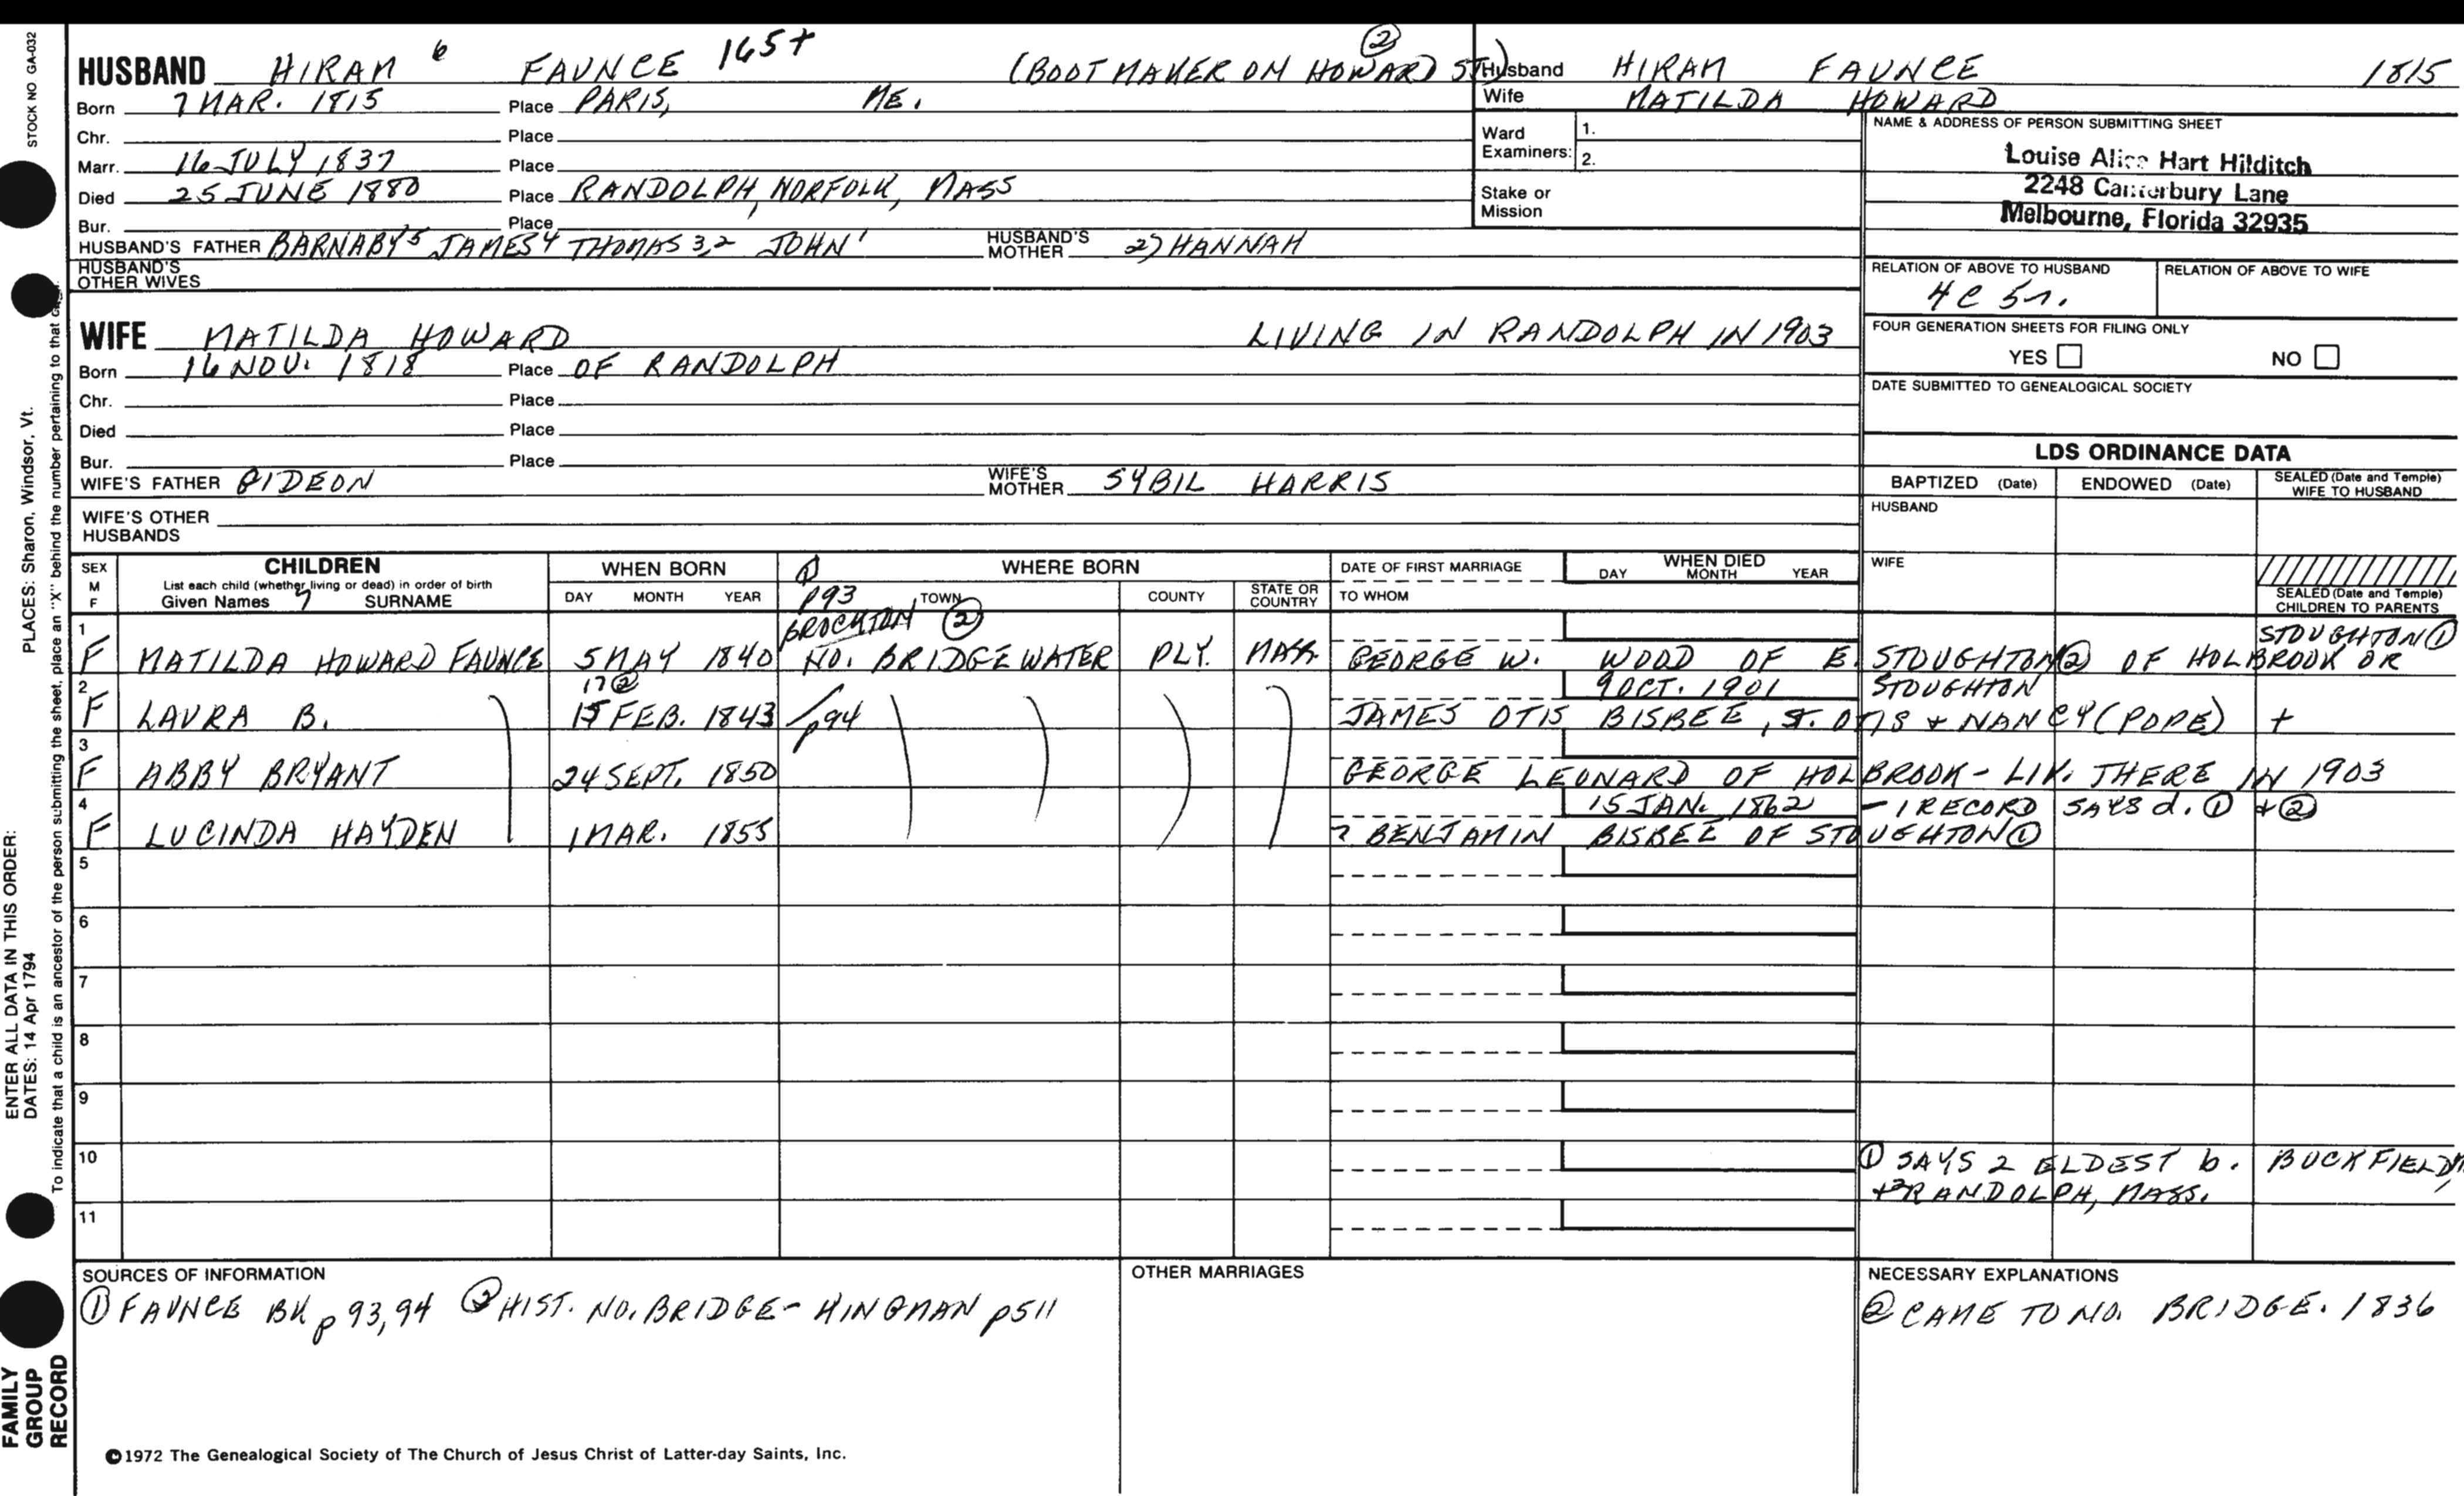 HUSBAND HIRAM 6 FAUNCE 165+ (BOOTMAKER ON HOWARD ST) ②
Born 7 MAR. 1815 Place PARIS, ME.
Chr. Place
Marr. 16 JULY 1837 Place
Died 25 JUNE 1880 Place RANDOLPH, NORFOLK, MASS
Bur. Place
HUSBAND'S FATHER BARNABY5 JAMES4 THOMAS3,2 JOHN1 HUSBAND'S MOTHER 2) HANNAH
HUSBAND'S OTHER WIVES
Husband HIRAM FAUNCE 1815
Wife MATILDA HOWARD
Ward Examiners: 1.
2.
Stake or Mission
NAME & ADDRESS OF PERSON SUBMITTING SHEET
Louise Alice Hart Hilditch
2248 Canterbury Lane
Melbourne, Florida 32935
RELATION OF ABOVE TO HUSBAND RELATION OF ABOVE TO WIFE
4C 5r.
FOUR GENERATION SHEETS FOR FILING ONLY
YES NO
DATE SUBMITTED TO GENEALOGICAL SOCIETY
WIFE MATILDA HOWARD LIVING IN RANDOLPH IN 1903
Born 16 NOV. 1818 Place OF RANDOLPH
Chr. Place
Died Place
Bur. Place
WIFE'S FATHER GIDEON WIFE'S MOTHER SYBIL HARRIS
WIFE'S OTHER HUSBANDS
LDS ORDINANCE DATA
BAPTIZED (Date) ENDOWED (Date) SEALED (Date and Temple) WIFE TO HUSBAND
HUSBAND
WIFE
SEALED (Date and Temple) CHILDREN TO PARENTS
SEX M F
CHILDREN
List each child (whether living or dead) in order of birth
Given Names 7 SURNAME
WHEN BORN
DAY MONTH YEAR
WHERE BORN
① p93
TOWN COUNTY STATE OR COUNTRY
DATE OF FIRST MARRIAGE
TO WHOM
WHEN DIED
DAY MONTH YEAR
BROCKTON ②
STOUGHTON①
1 F MATILDA HOWARD FAUNCE 5 MAY 1840 NO. BRIDGEWATER PLY. MASS. GEORGE W. WOOD OF E. STOUGHTON② OF HOLBROOK OR
17② 9 OCT. 1901 STOUGHTON
2 F LAURA B. 15 FEB. 1843 p94 JAMES OTIS BISBEE, S. OTIS + NANCY (POPE) +
3 F ABBY BRYANT 24 SEPT. 1850 GEORGE LEONARD OF HOLBROOK - LIV. THERE IN 1903
15 JAN. 1862 - 1 RECORD SAYS d. ① + ②
4 F LUCINDA HAYDEN 1 MAR. 1855 ? BENJAMIN BISBEE OF STOUGHTON①
5
6
7
8
9
10 ① SAYS 2 ELDEST b. BUCKFIELD,
RANDOLPH, MASS.
11
SOURCES OF INFORMATION
① FAUNCE BK p 93,94 ② HIST. NO. BRIDGE - KINGMAN p511
OTHER MARRIAGES
NECESSARY EXPLANATIONS
② CAME TO NO. BRIDGE. 1836
©1972 The Genealogical Society of The Church of Jesus Christ of Latter-day Saints, Inc.
STOCK NO GA-032
PLACES: Sharon, Windsor, Vt.
ENTER ALL DATA IN THIS ORDER:
DATES: 14 Apr 1794
To indicate that a child is an ancestor of the person submitting the sheet, place an "X" behind the number pertaining to that
FAMILY
GROUP
RECORD